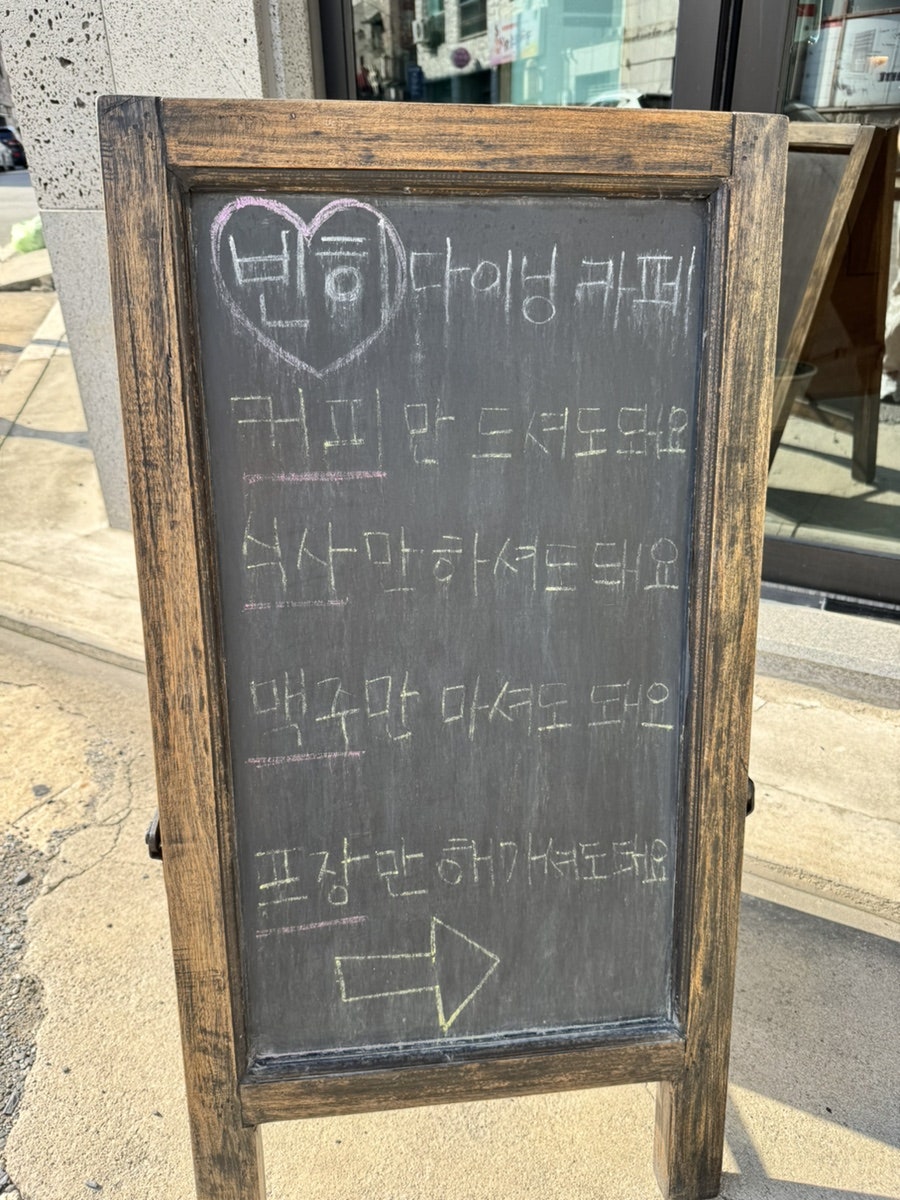 빈희 다이닝 카페
커피만 드셔도돼요
식사만하셔도돼요
맥주만 마셔도 돼요
포장만해가셔도돼요